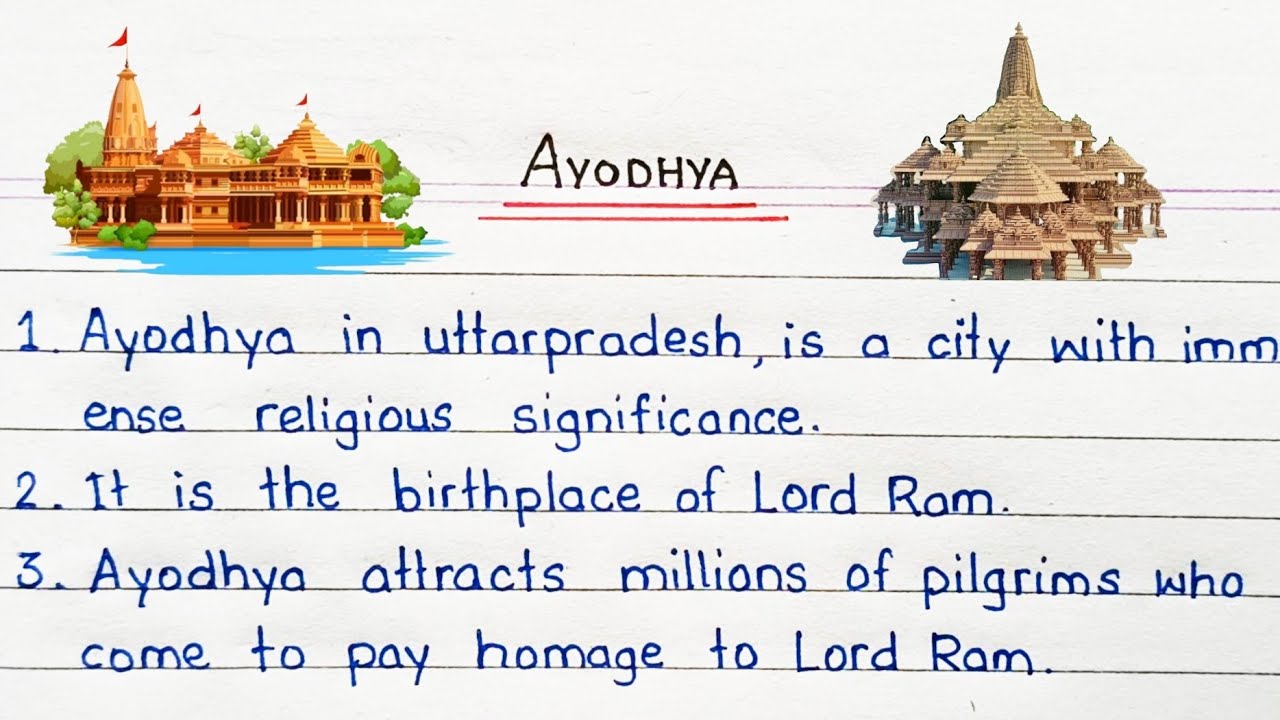 AYODHYA
1. Ayodhya in uttarpradesh, is a city with imm
ense religious significance.
2. It is the birthplace of Lord Ram.
3. Ayodhya attracts millions of pilgrims who
come to pay homage to Lord Ram.